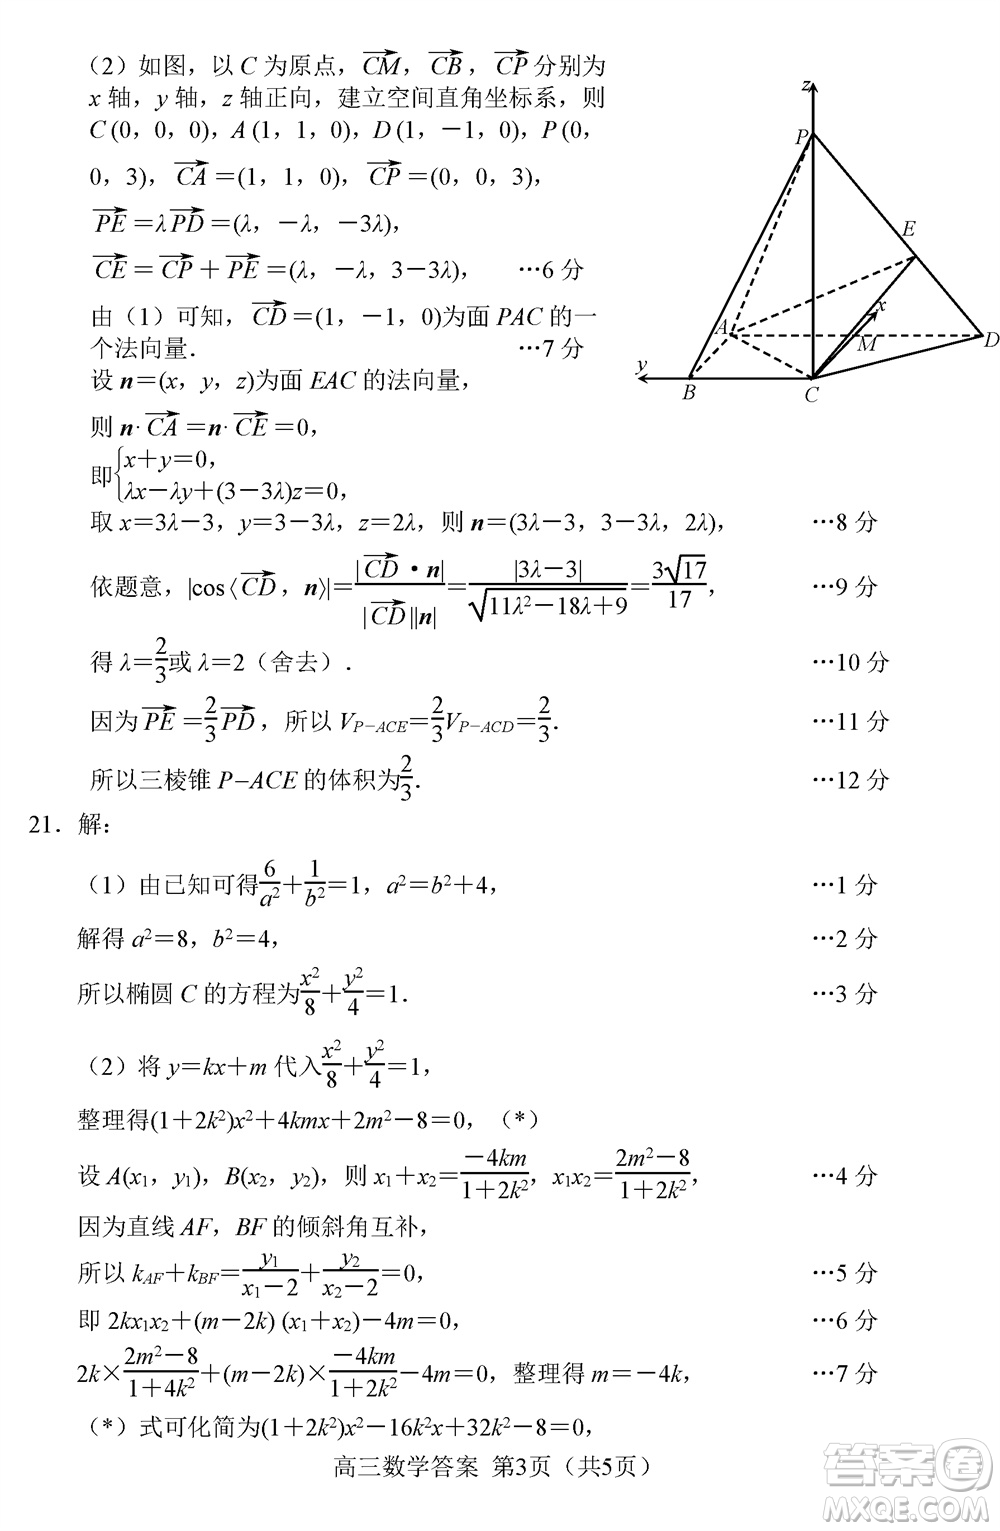 （2）如图，以 C 为原点，$\overrightarrow{CM}$，$\overrightarrow{CB}$，$\overrightarrow{CP}$ 分别为
x 轴，y 轴，z 轴正向，建立空间直角坐标系，则
C (0，0，0)，A (1，1，0)，D (1，－1，0)，P (0，
0，3)，$\overrightarrow{CA}$＝(1，1，0)，$\overrightarrow{CP}$＝(0，0，3)，
$\overrightarrow{PE}$＝λ$\overrightarrow{PD}$＝(λ，－λ，－3λ)，
$\overrightarrow{CE}$＝$\overrightarrow{CP}$＋$\overrightarrow{PE}$＝(λ，－λ，3－3λ)， …6 分
由（1）可知，$\overrightarrow{CD}$＝(1，－1，0)为面 PAC 的一
个法向量． …7 分
设 n＝(x，y，z)为面 EAC 的法向量，
则 n·$\overrightarrow{CA}$＝n·$\overrightarrow{CE}$＝0，
即$\begin{cases} x+y=0， \\ λx-λy+(3-3λ)z=0， \end{cases}$
取 x＝3λ－3，y＝3－3λ，z＝2λ，则 n＝(3λ－3，3－3λ，2λ)， …8 分
依题意，|cos⟨$\overrightarrow{CD}$，n⟩|＝$\frac{|\overrightarrow{CD}·n|}{|\overrightarrow{CD}||n|}$＝$\frac{|3λ-3|}{\sqrt{11λ^2-18λ+9}}$＝$\frac{3\sqrt{17}}{17}$， …9 分
得 λ＝$\frac{2}{3}$或 λ＝2（舍去）． …10 分
因为$\overrightarrow{PE}$＝$\frac{2}{3}\overrightarrow{PD}$，所以 $V_{P-ACE}$＝$\frac{2}{3}V_{P-ACD}$＝$\frac{2}{3}$． …11 分
所以三棱锥 P－ACE 的体积为$\frac{2}{3}$． …12 分
z
P
E
x
A
M
D
y
B
C
21．解：
（1）由已知可得$\frac{6}{a^2}$＋$\frac{1}{b^2}$＝1，a²＝b²＋4， …1 分
解得 a²＝8，b²＝4， …2 分
所以椭圆 C 的方程为$\frac{x^2}{8}$＋$\frac{y^2}{4}$＝1． …3 分
（2）将 y＝kx＋m 代入$\frac{x^2}{8}$＋$\frac{y^2}{4}$＝1，
整理得(1＋2k²)x²＋4kmx＋2m²－8＝0，（*）
设 A(x₁，y₁)，B(x₂，y₂)，则 x₁＋x₂＝$\frac{-4km}{1+2k^2}$，x₁x₂＝$\frac{2m^2-8}{1+2k^2}$， …4 分
因为直线 AF，BF 的倾斜角互补，
所以 $k_{AF}$＋$k_{BF}$＝$\frac{y_1}{x_1-2}$＋$\frac{y_2}{x_2-2}$＝0， …5 分
即 2kx₁x₂＋(m－2k) (x₁＋x₂)－4m＝0， …6 分
2k×$\frac{2m^2-8}{1+4k^2}$＋(m－2k)×$\frac{-4km}{1+2k^2}$－4m＝0，整理得 m＝－4k， …7 分
（*）式可化简为(1＋2k²)x²－16k²x＋32k²－8＝0，
高三数学答案 第3页（共5页）
答案圈
MXQE.COM